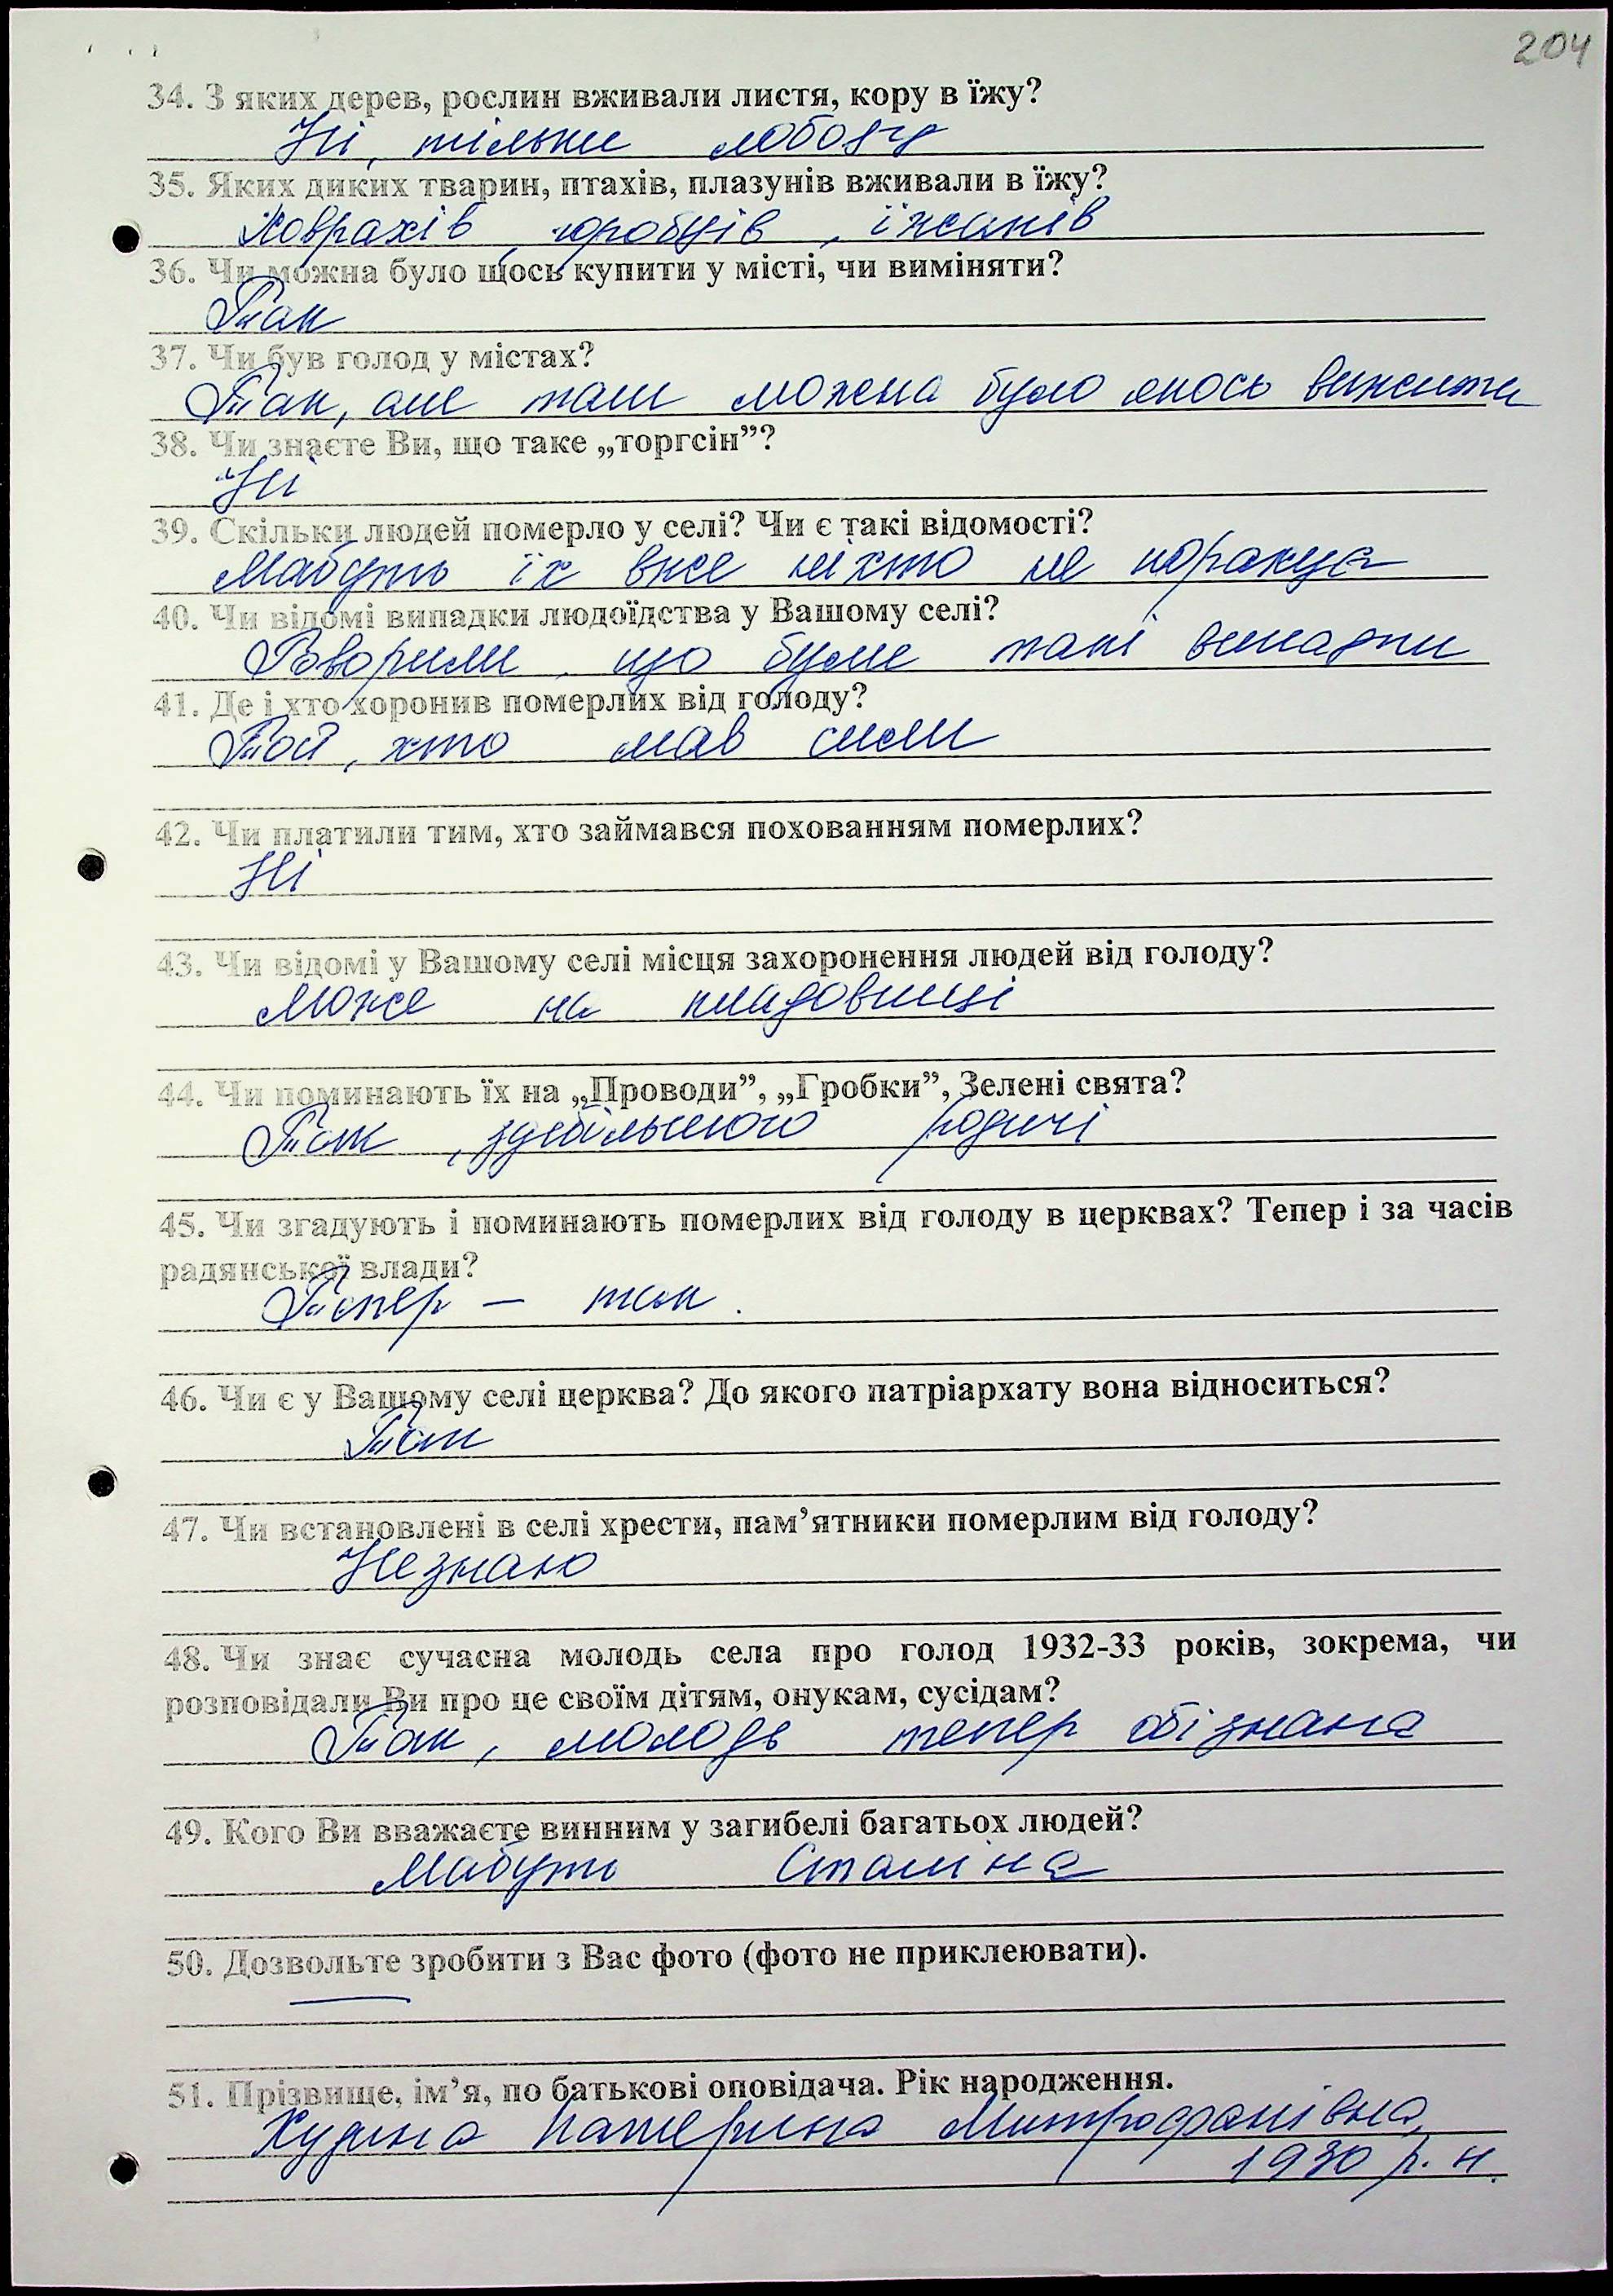 204
34. З яких дерев, рослин вживали листя, кору в їжу?
Ні, тільки лободу
35. Яких диких тварин, птахів, плазунів вживали в їжу?
Ховрахів, горобців, їжаків
36. Чи можна було щось купити у місті, чи виміняти?
Так
37. Чи був голод у містах?
Так, але там можна було якось вижити
38. Чи знаєте Ви, що таке „торгсін”?
Ні
39. Скільки людей померло у селі? Чи є такі відомості?
Мабуть їх вже ніхто не порахує
40. Чи відомі випадки людоїдства у Вашому селі?
Говорили, що були такі випадки
41. Де і хто хоронив померлих від голоду?
Той, хто мав сили
42. Чи платили тим, хто займався похованням померлих?
Ні
43. Чи відомі у Вашому селі місця захоронення людей від голоду?
Може на кладовищі
44. Чи поминають їх на „Проводи”, „Гробки”, Зелені свята?
Так, здебільшого родичі
45. Чи згадують і поминають померлих від голоду в церквах? Тепер і за часів
радянської влади?
Тепер – так.
46. Чи є у Вашому селі церква? До якого патріархату вона відноситься?
Так
47. Чи встановлені в селі хрести, пам’ятники померлим від голоду?
Незнаю
48. Чи знає сучасна молодь села про голод 1932-33 років, зокрема, чи
розповідали Ви про це своїм дітям, онукам, сусідам?
Так, молодь тепер обізнана
49. Кого Ви вважаєте винним у загибелі багатьох людей?
Мабуть Сталіна
50. Дозвольте зробити з Вас фото (фото не приклеювати).
—
51. Прізвище, ім’я, по батькові оповідача. Рік народження.
Худина Катерина Митрофанівна,
1930 р. н.